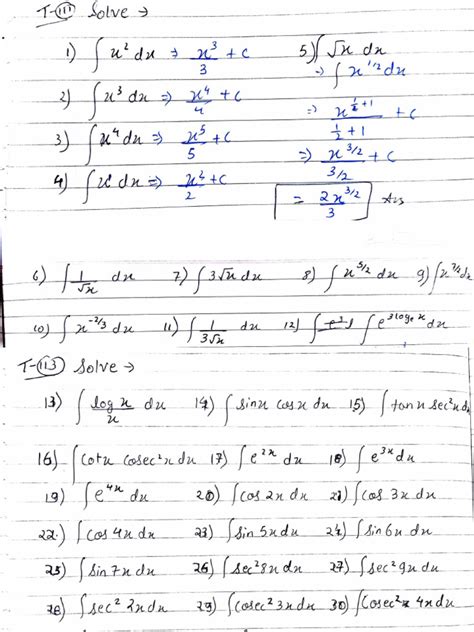 T-111 Solve →
1) ∫ x² dx ⇒ x³/3 + c
5) ∫ √x dx
⇒ ∫ x^1/2 dx
2) ∫ x³ dx ⇒ x⁴/4 + c
⇒ x^(1/2+1)/(1/2+1) + c
3) ∫ x⁴ dx ⇒ x⁵/5 + c
⇒ x^3/2 / 3/2 + c
4) ∫ x¹ dx ⇒ x²/2 + c
= 2x^3/2 / 3 Ans
6) ∫ 1/√x dx 7) ∫ 3√x dx 8) ∫ x^5/2 dx 9) ∫ x^7/2 dx
10) ∫ x^-2/3 dx 11) ∫ 1/3√x dx 12) ∫ e^3logₑx dx
T-113 Solve →
13) ∫ log x/x dx 14) ∫ sinx cosx dx 15) ∫ tanx sec²x dx
16) ∫ cotx cosec²x dx 17) ∫ e^2x dx 18) ∫ e^3x dx
19) ∫ e^4x dx 20) ∫ cos 2x dx 21) ∫ cos 3x dx
22.) ∫ cos 4x dx 23) ∫ sin 5x dx 24) ∫ sin 6x dx
25) ∫ sin 7x dx 26) ∫ sec² 8x dx 27) ∫ sec² 9x dx
28) ∫ sec² 2x dx 29) ∫ cosec² 3x dx 30) ∫ cosec² 4x dx